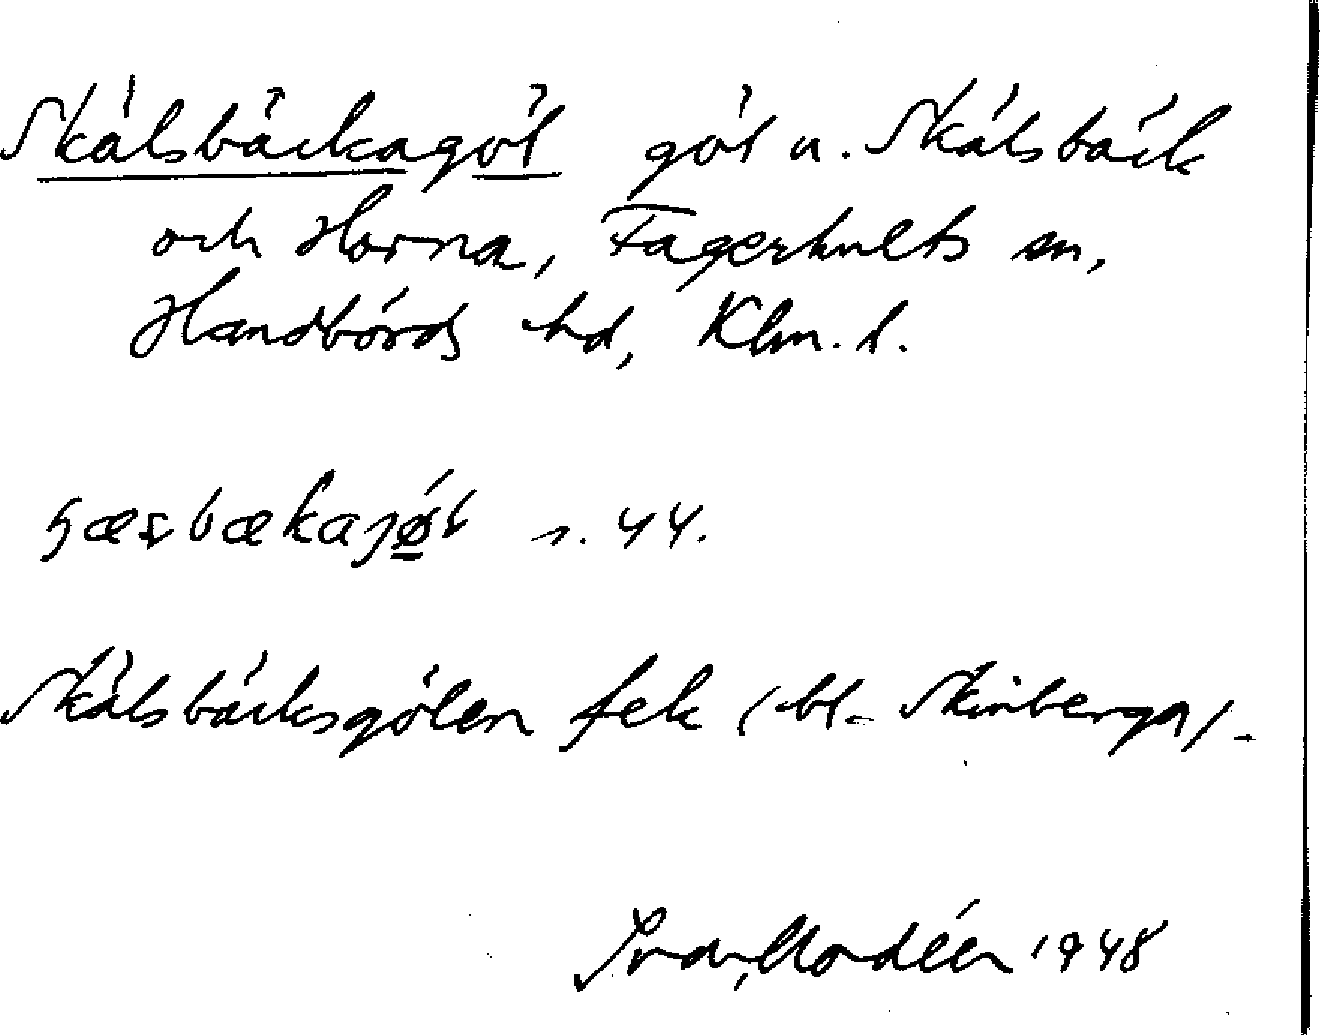 Skälsbäckagöl göl u. Skälsbäck
och Horna, Fagerhults sn,
Handbörds hd, Klm. l.
s. 44.
Skälsbäcksgölen fek (bl. Skinberga).
Ivar Modéer 1948